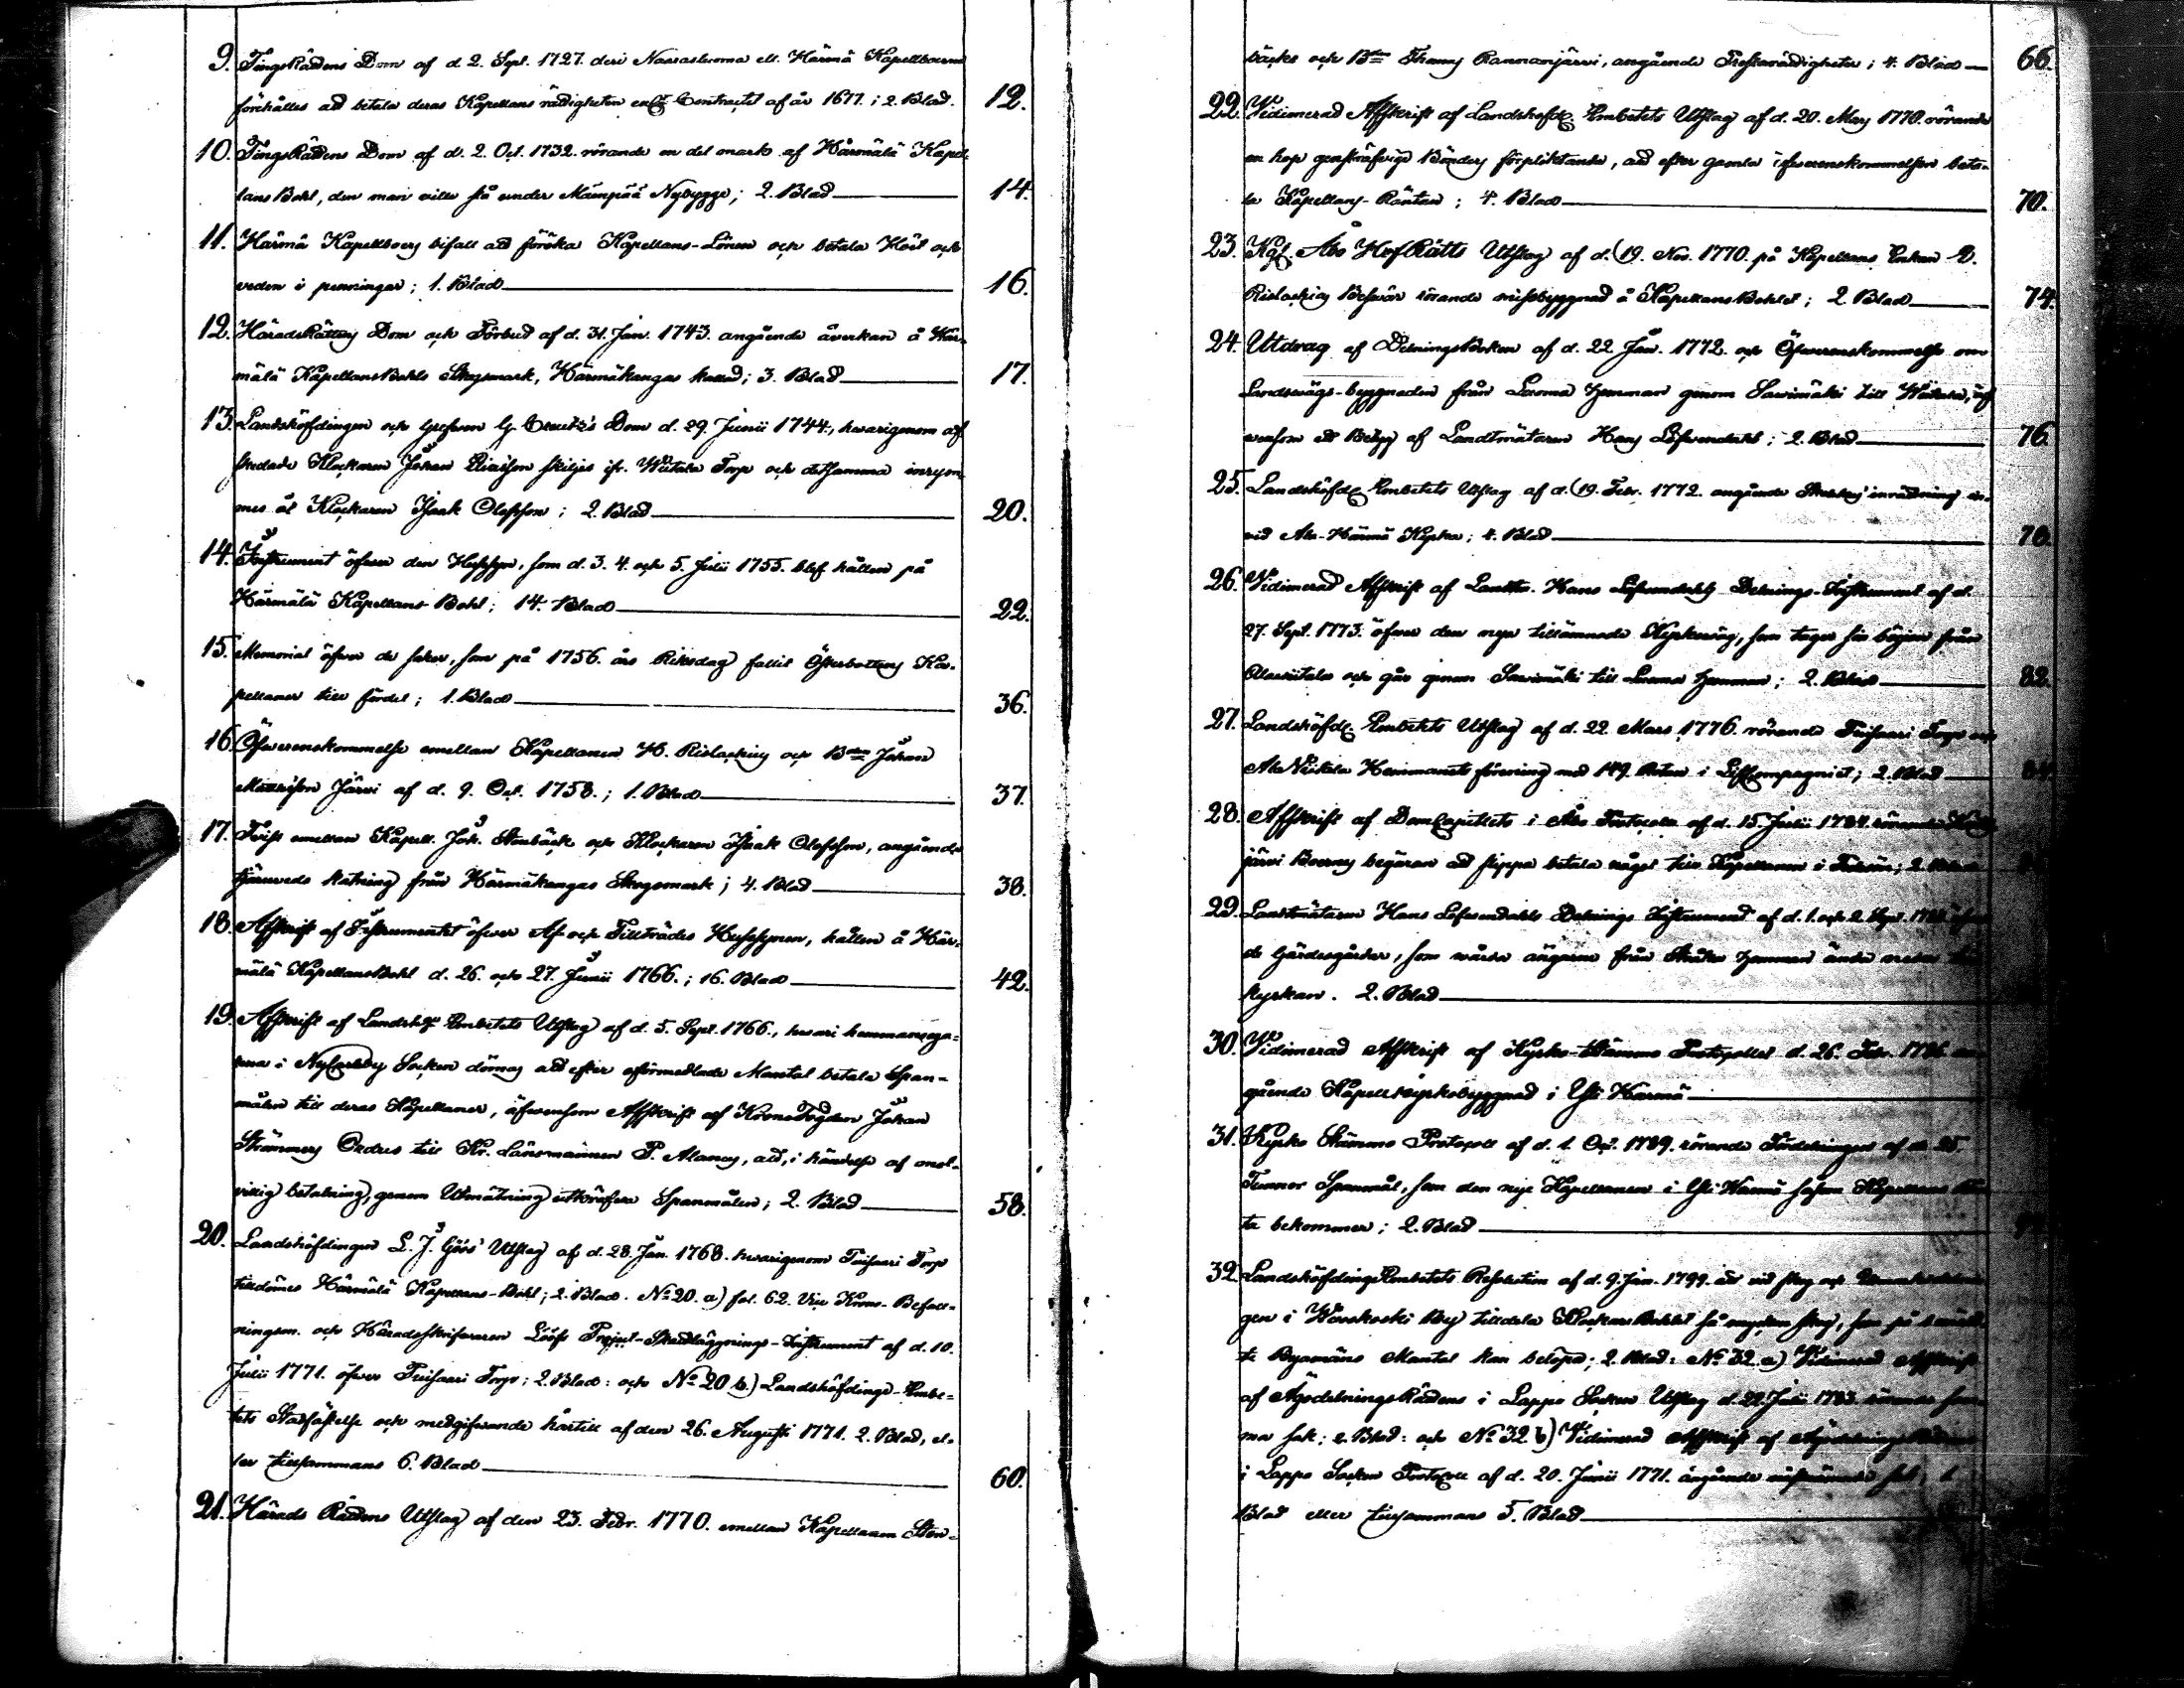 9. TingsRättens Dom af d. 2. Sept. 1727. deri Naarasluoma ell. Härmä Kapellboerne
förehålles att betala deras Kapellans rättigheten enl. Contractet af år 1677. ; 2. Blad. 12.
10. TingsRättens Dom af d. 2. Oct. 1732. rörande en del mark af Härmälä Kapel-
lans Bohl, den man ville få under Mämpää Nybygge; 2. Blad 14.
11. Härmä Kapellboers bifall att föröka Kapellans-Lönen och betala Höet och
veden i penningar; 1. Blad 16.
12. HäradsRättens Dom och Förbud af d. 31. Jan. 1743. angående åverkan å Här-
mälä KapellansBohls Skogsmark, Härmäkangas kallad; 3. Blad 17.
13. Landshöfdingen och Grefven G. Creutz's Dom d. 29. Junii 1744., hvarigenom af-
skedade Klockaren Johan Ericsson skiljes ifr. Wiitala Torp och detsamma inrym-
mes åt Klockaren Isaak Olofsson; 2. Blad 20.
14. Instrument öfver den Hussyn, som d. 3. 4. och 5. Julii 1755. blef hållen på
Härmälä Kapellans-Bohl; 14. Blad 22.
15. Memorial öfver de saker, som på 1756. års Riksdag fallit Österbottens Ka-
pellaner till fördel; 1. Blad 36.
16. Öfverenskommelse emellan Kapellanen H. Rislachius och Bden Johan
Mattsson Järvi af d. 9. Oct. 1758. ; 1. Blad 37.
17. Tvist emellan Kapell. Joh. Stenbäck och Klockaren Isaak Olofsson, angående
tjärveds katning från Härmäkangas Skogsmark; 4. Blad 38.
18. Afskrift af Instrumentet öfver Af- och Tillträdes Hussynen, hållen å Här-
mälä KapellansBohl d. 26. och 27. Junii 1766. ; 16. Blad 42.
19. Afskrift af Landshöf Embetets Utslag af d. 5. Sept. 1766., hvari hemmansega-
rna i NyCarleby Socken dömas att efter oförmedlade Mantal betala Span-
målen till deras Kapellaner, äfvensom Afskrift af KronoFogden Johan
Strömmers Ordres till Kr. Länsmannen P. Alanus, att, i händelse af mot-
villig betalning, genom Utmätning utkräfva Spanmålen; 2. Blad 58.
20. Landshöfdingen L. J. Göös' Utslag af d. 28. Jan. 1768. hvarigenom Tuisaari Torp
tilldömes Härmälä Kapellans-Bohl; 2. Blad. No 20. a) fol. 62. Vice Krono-Befall-
ningsm. och Häradsskrifvaren Lööfs Project-Skattläggnings-Instrument af d. 10.
Julii 1771. öfver Tuisaari Torp; 2. Blad: och No 20 b.) Landshöfdinge-Embe-
tets Stadfästelse och medgifvande härtill af den 26. Augusti 1771. 2. Blad, el-
ler tillsammans 6. Blad 60.
21. Härads Rättens Utslag af den 23. Febr. 1770. emellan Kapellanen Sten-
bäcks och Bden Thomas Rannanjärvi, angående Presträttigheter; 4. Blad 66.
22. Vidimerad Afskrift af Landshöfde Embetets Utslag af d. 20. May 1770. rörande
en hop gensträfvige Bönders förpliktande, att efter gamla öfverenskommelsen beta-
la Kapellans-Räntan; 4. Blad 70.
23. Kgl. Åbo HofRätts Utslag af d. 19. Nov. 1770. på Kapellans Enkan E.
Rislachias Besvär rörande missbyggnad å KapellansBohlet; 2. Blad 74.
24. Utdrag af DelningsBoken af d. 22. Jan. 1772. och Öfverenskommelse om
Landsvägs-byggnaden från Luoma hemman genom Savimäki till Wiitala, äf-
vensom ett Betyg af Landtmätaren Hans Löfvendahl; 2. Blad 76.
25. Landshöfde Embetets Utslag af d. 19. Febr. 1772. angående inrättning in-
vid Ala-Härmä Kyrka; 4. Blad 78.
26. Vidimerad Afskrift af Landtm. Hans Löfvendahls Delnings-Instrument af d.
27. Sept. 1773. öfver den nya tillämnade Kyrkoväg, som tager sin början från
Alawiitala och går genom Savimäki till Luoma hemman; 2. Blad 82.
27. Landshöfde Embetets Utslag af d. 22. Mars 1776. rörande Tuisaari Torps och
Ala Wiitala Hemmanets förening med 149. Roten i LifCompagniet; 2. Blad 84.
28. Afskrift af DomCapitlets i Åbo Protocoll af d. 15. Julii 1784. rörande
järvi Boerns begäran att slippa betala något till Kapellanen i; 2. Blad
29. Landtmätaren Hans Löfvendahls Delnings Instrument af d. 1. och 2. Sept.
de Gärdesgårdar, som vårda ängarne från hemman ända nedan
kyrkan. 2. Blad
30. Vidimerad Afskrift af Kyrko-Stämmo Protocollet d. 26. Febr. 1786. an-
gående Kapellkyrkobyggnad i Yli Härmä
31. Kyrko Stämmo Protocoll af d. 1. Oct. 1789. rörande Fördelningen af de 25.
Tunnor Spanmål, som den nye Kapellanen i Yli Härmä såsom Kapellans
ta bekommer; 2. Blad
32. LandshöfdingeEmbetets Resolution af d. 9. Jan. 1799. att vid skog och
gen i Wooskoski By tilldela KlockareBohlet så mycken skog, som på
te Byamäns Mantal kan belöpa; 2. Blad: No 32. a) Vidimerad Afskrift
af ÄgodelningsRättens i Lappo Socken Utslag d. 22. Julii 1783. rörande sam-
ma sak; 2. Blad: och No 32 b) Vidimerad Afskrift af ÄgodelningsRättens
i Lappo Socken Protocoll af d. 20. Junii 1771. angående sak; 1
Blad eller tillsammans 5. Blad